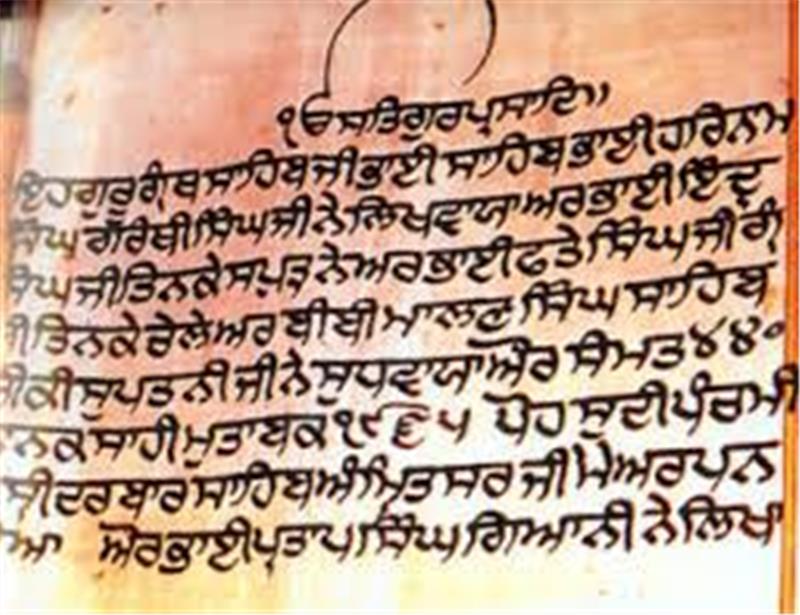 ੴ ਸਤਿਗੁਰਪ੍ਰਸਾਦਿ॥
ਇਹ ਗੁਰੂ ਗ੍ਰੰਥ ਸਾਹਿਬ ਜੀ ਭਾਈ ਸਾਹਿਬ ਭਾਈ ਹਰਿਨਾਮ
ਸਿੰਘ ਗਰੰਥੀ ਸਿੰਘ ਜੀ ਨੇ ਲਿਖਵਾਯਾ ਅਰ ਭਾਈ ਇੰਦ੍ਰ
ਸਿੰਘ ਜੀ ਤਿਨਕੇ ਸਪੁਤ੍ਰ ਨੇ ਅਰ ਭਾਈ ਫਤੇ ਸਿੰਘ ਜੀ
ਜੀ ਤਿਨਕੇ ਚੇਲੇ ਅਰ ਬੀਬੀ ਮਾਲਣ ਸਿੰਘ ਸਾਹਿਬ
ਜੀ ਕੀ ਸੁਪਤਨੀ ਜੀ ਨੇ ਸੁਧਵਾਯਾ ਔਰ ਸੰਮਤ ੪੪੦
ਨਾਨਕ ਸਾਹੀ ਮੁਤਾਬਕ ੧੯੬੫ ਪੋਹ ਸੁਦੀ ਪੰਚਮੀ
ਸ੍ਰੀ ਦਰਬਾਰ ਸਾਹਿਬ ਅੰਮ੍ਰਿਤਸਰ ਜੀ ਮੇ ਅਰਪਨ
ਔਰ ਭਾਈ ਪ੍ਰਤਾਪ ਸਿੰਘ ਗਿਆਨੀ ਨੇ ਲਿਖਾ